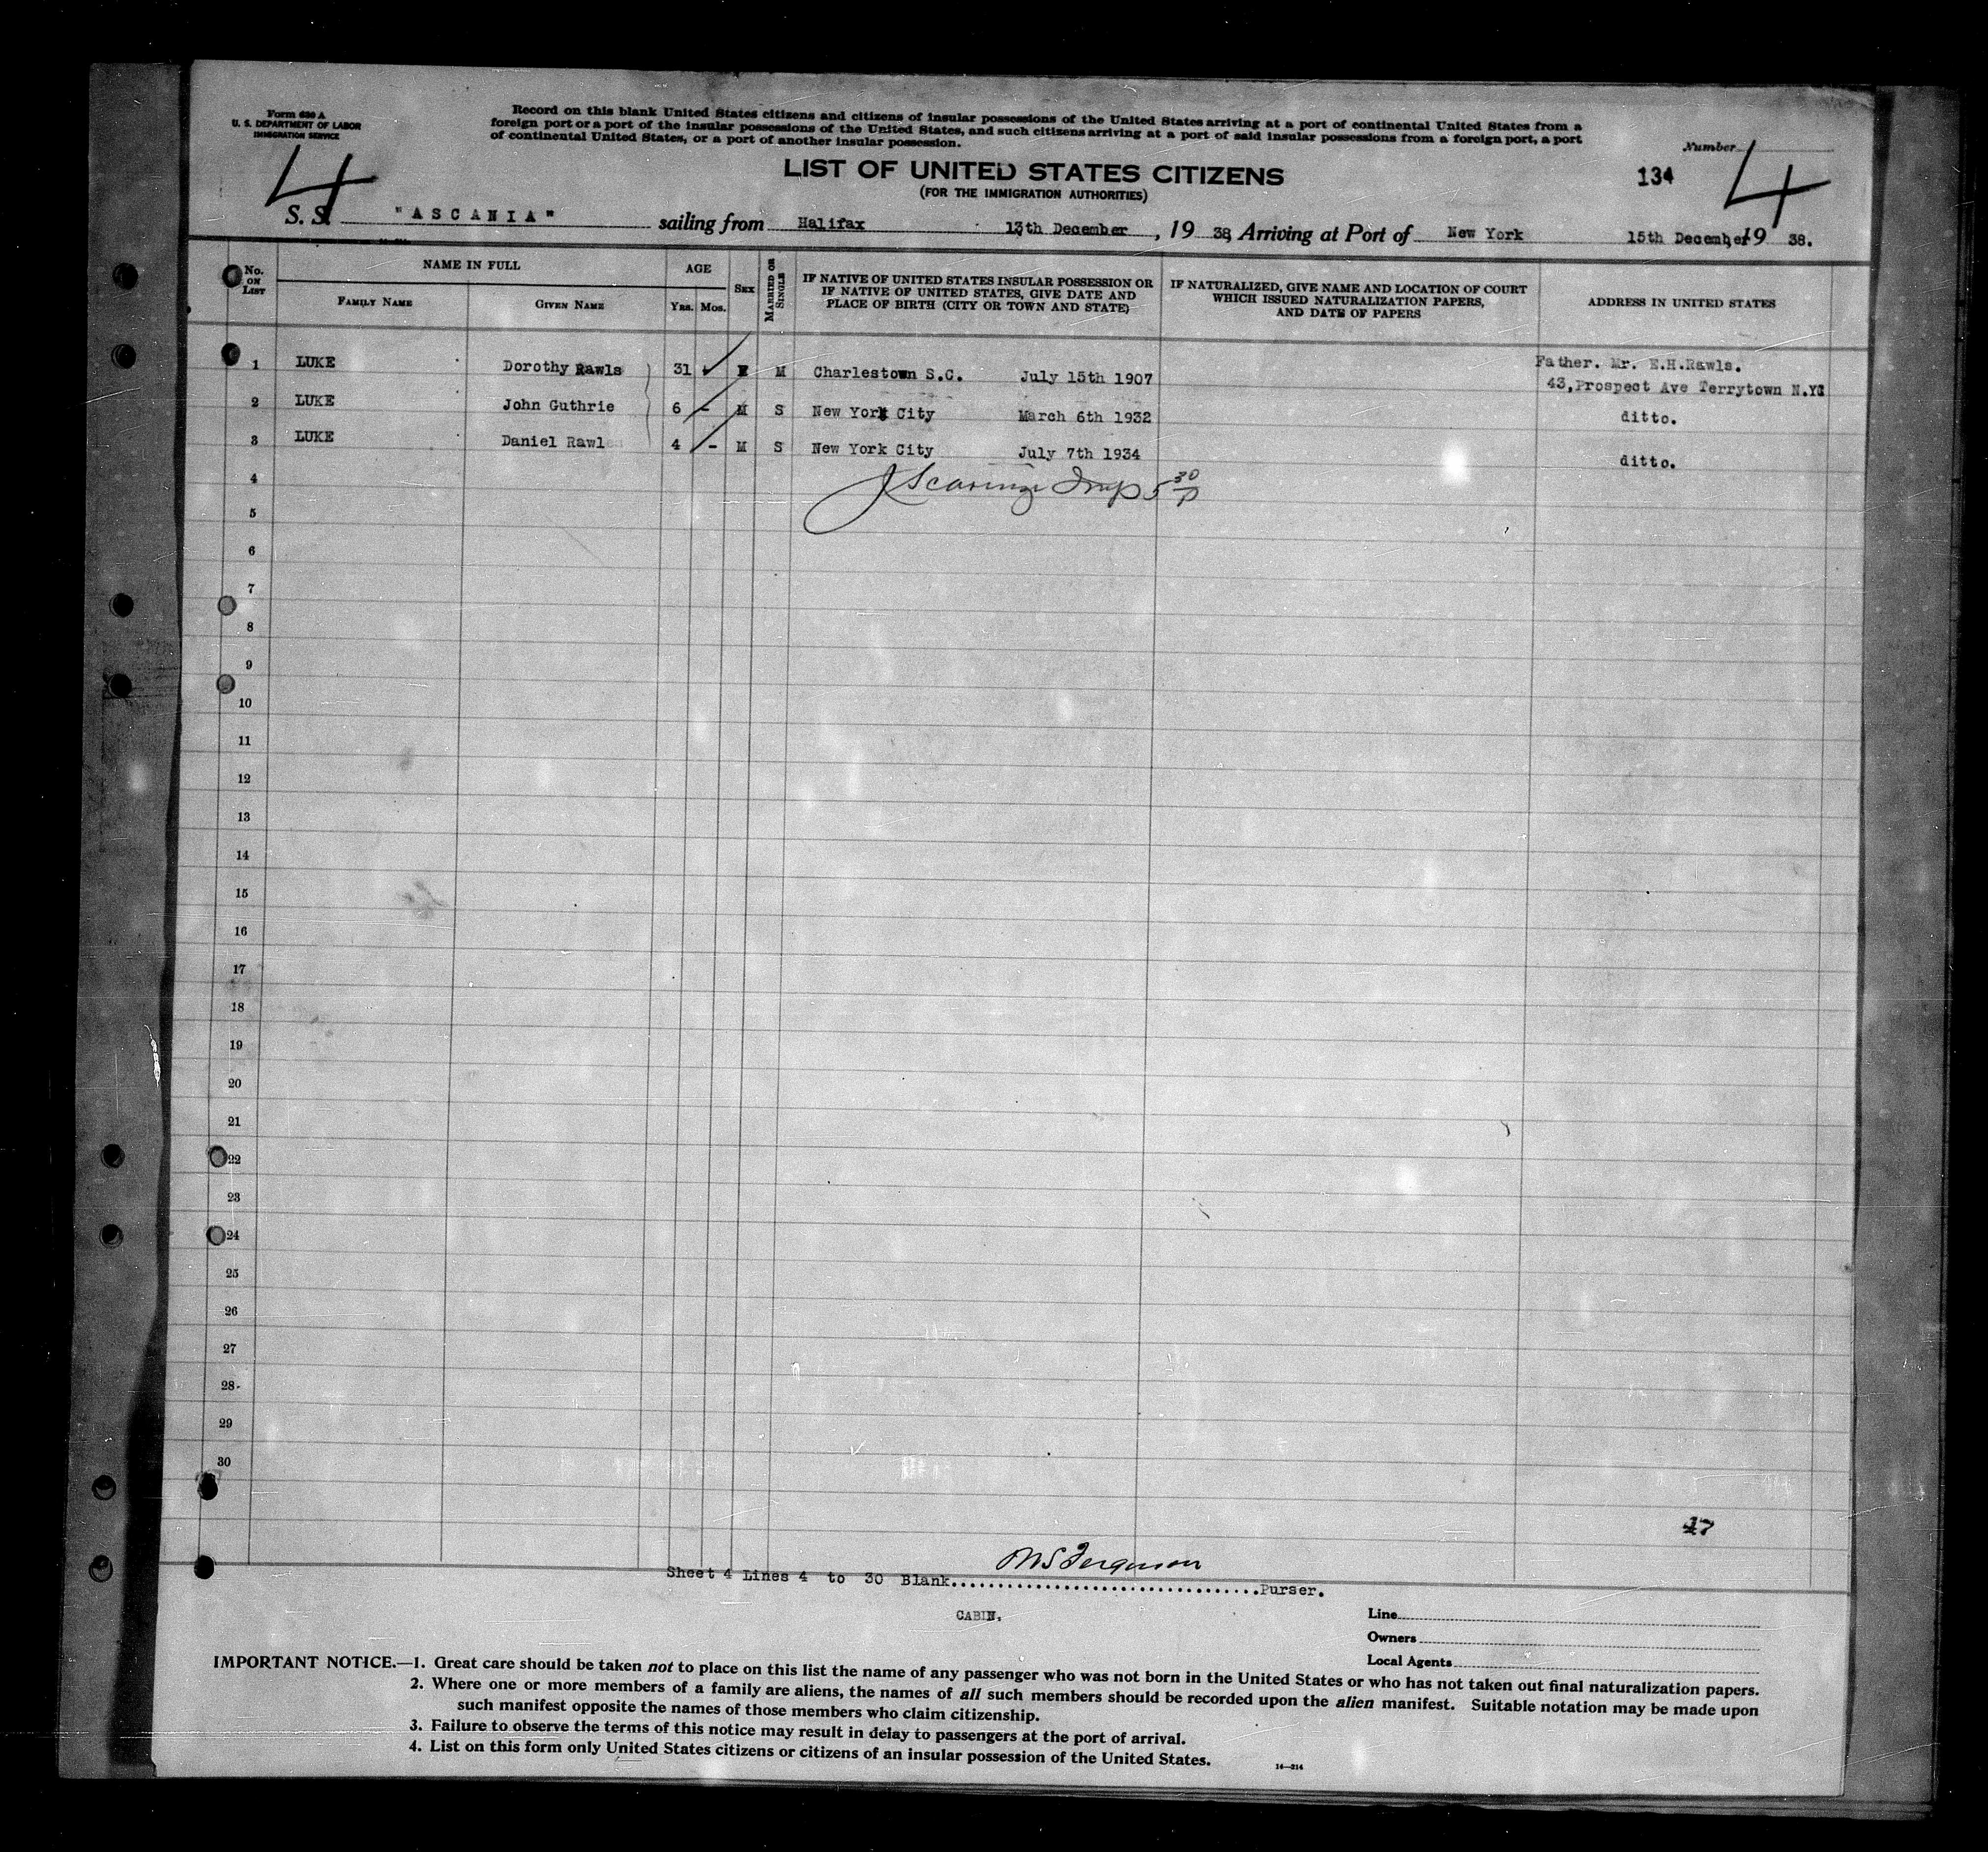 Form 630 A
U. S. DEPARTMENT OF LABOR
IMMIGRATION SERVICE
Record on this blank United States citizens and citizens of insular possessions of the United States arriving at a port of continental United States from a
foreign port or a port of the insular possessions of the United States, and such citizens arriving at a port of said insular possessions from a foreign port, a port
of continental United States, or a port of another insular possession.
LIST OF UNITED STATES CITIZENS
(FOR THE IMMIGRATION AUTHORITIES)
134
Number
4
4
S. S. "ASCANIA" sailing from Halifax 13th December, 19 38, Arriving at Port of New York 15th December, 19 38.
No. ON LIST
NAME IN FULL
FAMILY NAME
GIVEN NAME
AGE
Yrs. Mos.
SEX
MARRIED OR SINGLE
IF NATIVE OF UNITED STATES INSULAR POSSESSION OR
IF NATIVE OF UNITED STATES, GIVE DATE AND
PLACE OF BIRTH (CITY OR TOWN AND STATE)
IF NATURALIZED, GIVE NAME AND LOCATION OF COURT
WHICH ISSUED NATURALIZATION PAPERS,
AND DATE OF PAPERS
ADDRESS IN UNITED STATES
1 LUKE Dorothy Rawls 31 F M Charlestown S.C. July 15th 1907 Father. Mr. E.H.Rawls.
43,Prospect Ave Terrytown N.YC
2 LUKE John Guthrie 6 - M S New York City March 6th 1932 ditto.
3 LUKE Daniel Rawl 4 - M S New York City July 7th 1934 ditto.
4
5
6
7
8
9
10
11
12
13
14
15
16
17
18
19
20
21
22
23
24
25
26
27
28
29
30
47
Sheet 4 Lines 4 to 30 Blank..................................Purser.
CABIN.
Line
Owners
Local Agents
IMPORTANT NOTICE.—1. Great care should be taken not to place on this list the name of any passenger who was not born in the United States or who has not taken out final naturalization papers.
2. Where one or more members of a family are aliens, the names of all such members should be recorded upon the alien manifest. Suitable notation may be made upon
such manifest opposite the names of those members who claim citizenship.
3. Failure to observe the terms of this notice may result in delay to passengers at the port of arrival.
4. List on this form only United States citizens or citizens of an insular possession of the United States.
14—214